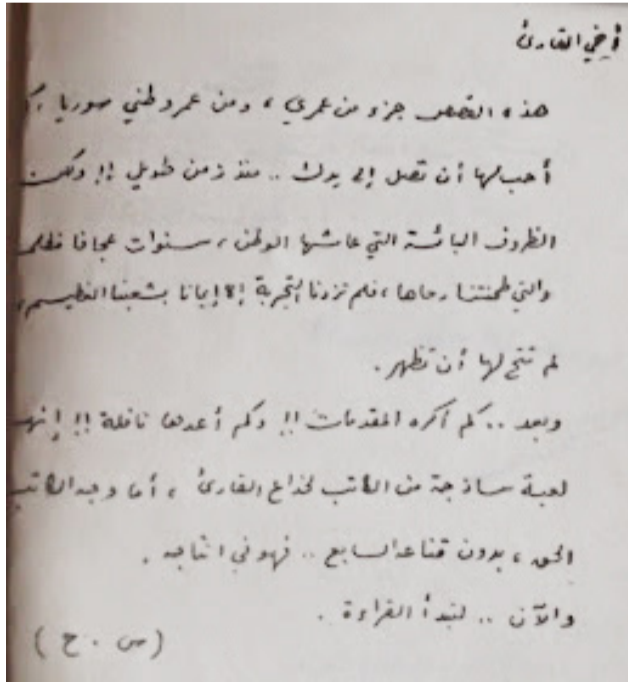 أخي القارئ
هذه القصص جزء من عمري ، ومن عمر وطني سوريا ،
أحب لها أن تصل إلى يدك .. منذ زمن طويل !! ولكن
الظروف البائسة التي عاشها الوطن ، سنوات عجافا
والتي طحنتنا رحاها ، فلم تزدنا التجربة إلا إيمانا بشعبنا العظيم ،
لم تتح لها أن تظهر .
وبعد .. كم أكره المقدمات !! وكم أعدها نافلة !! إنها
لعبة ساذجة من الكاتب لخداع القارئ ، أما وجه الكاتب
الحق ، بدون قناعه السابع .. فهو في انتاجه .
والآن .. لنبدأ القراءة .
( س . ح )